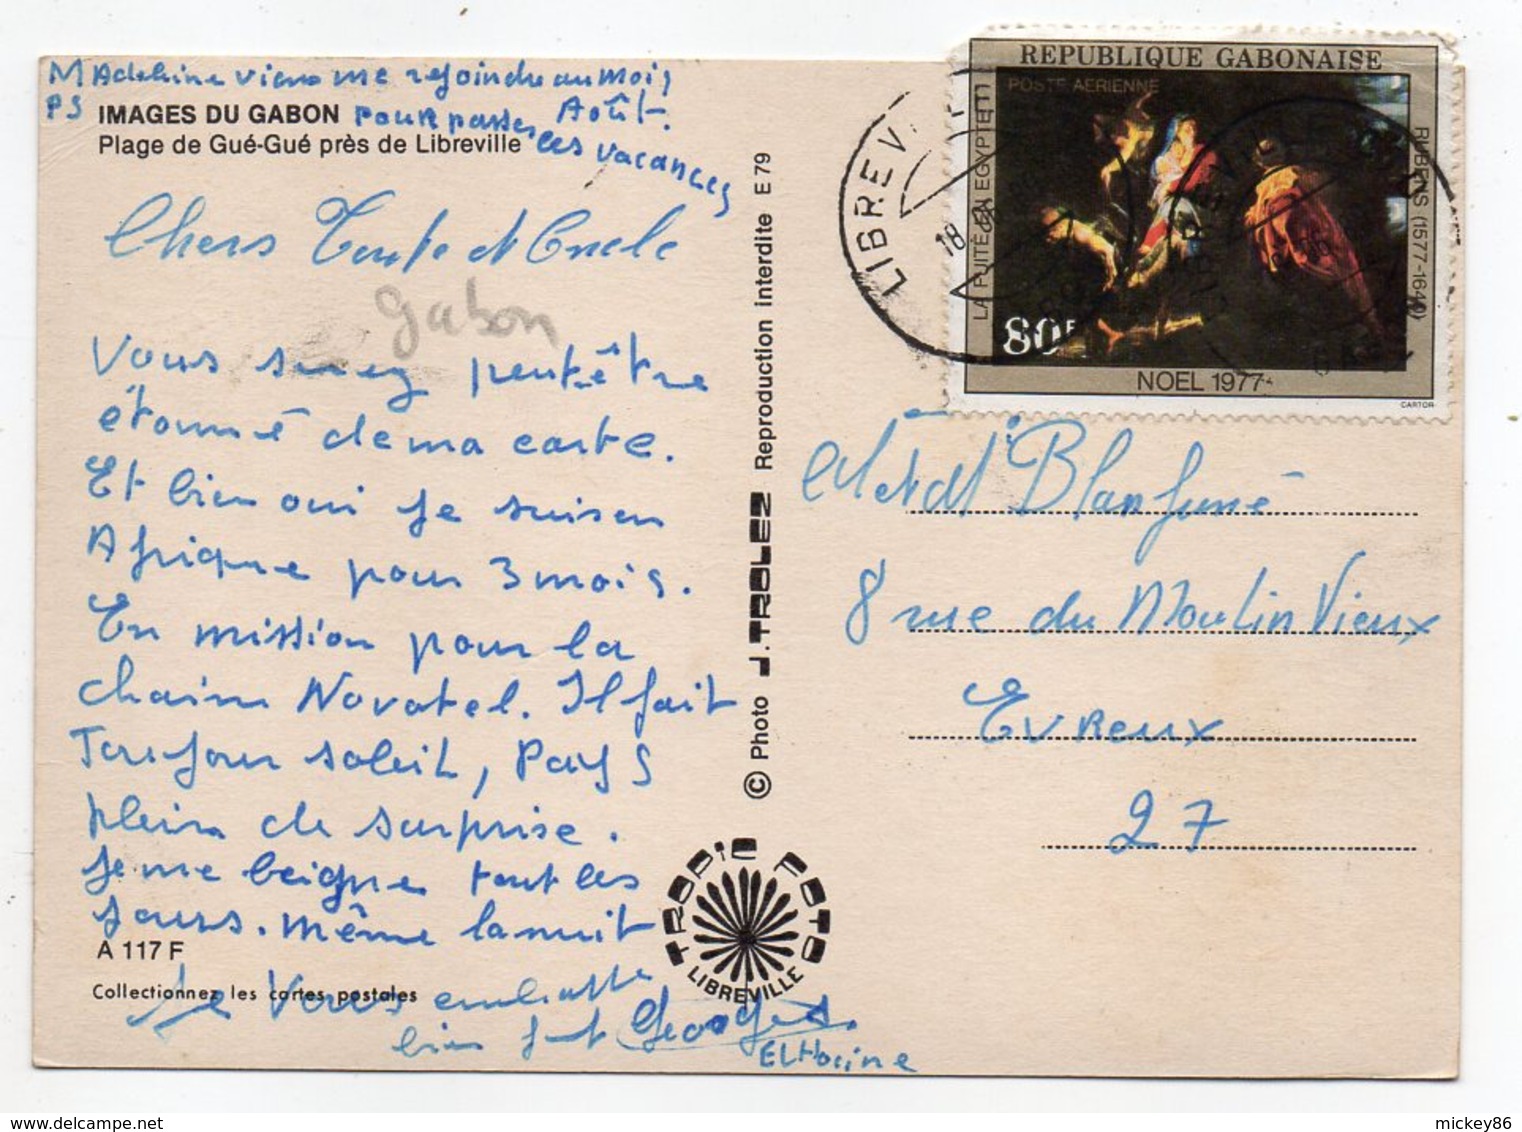 MAdeleine viens me rejoindre au mois
PS
IMAGES DU GABON
pour passer
Août.
Plage de Gué-Gué près de Libreville
les vacances
Chers Tante et Oncle
Gabon
Vous serez peut être
étonné de ma carte.
Et bien oui je suis en
Afrique pour 3 mois.
En mission pour la
chaine Novotel. Il fait
Toujour soleil, Pays
plein de surprise.
Je me beigne tout les
jours. même la nuit
A 117 F
Collectionnez les cartes postales
Je Vous embrasse
bien fort Georges.
El Hocine
© Photo J. TROLEZ Reproduction interdite E 79
TROPIC FOTO
LIBREVILLE
REPUBLIQUE GABONAISE
POSTE AERIENNE
LA FUITE EN EGYPTE
RUBENS (1577-1640)
80F
NOEL 1977
CARTOR
LIBREVILLE
18
et Blanfuné
8 rue du Moulin Vieux
EVReux
27
mickey86